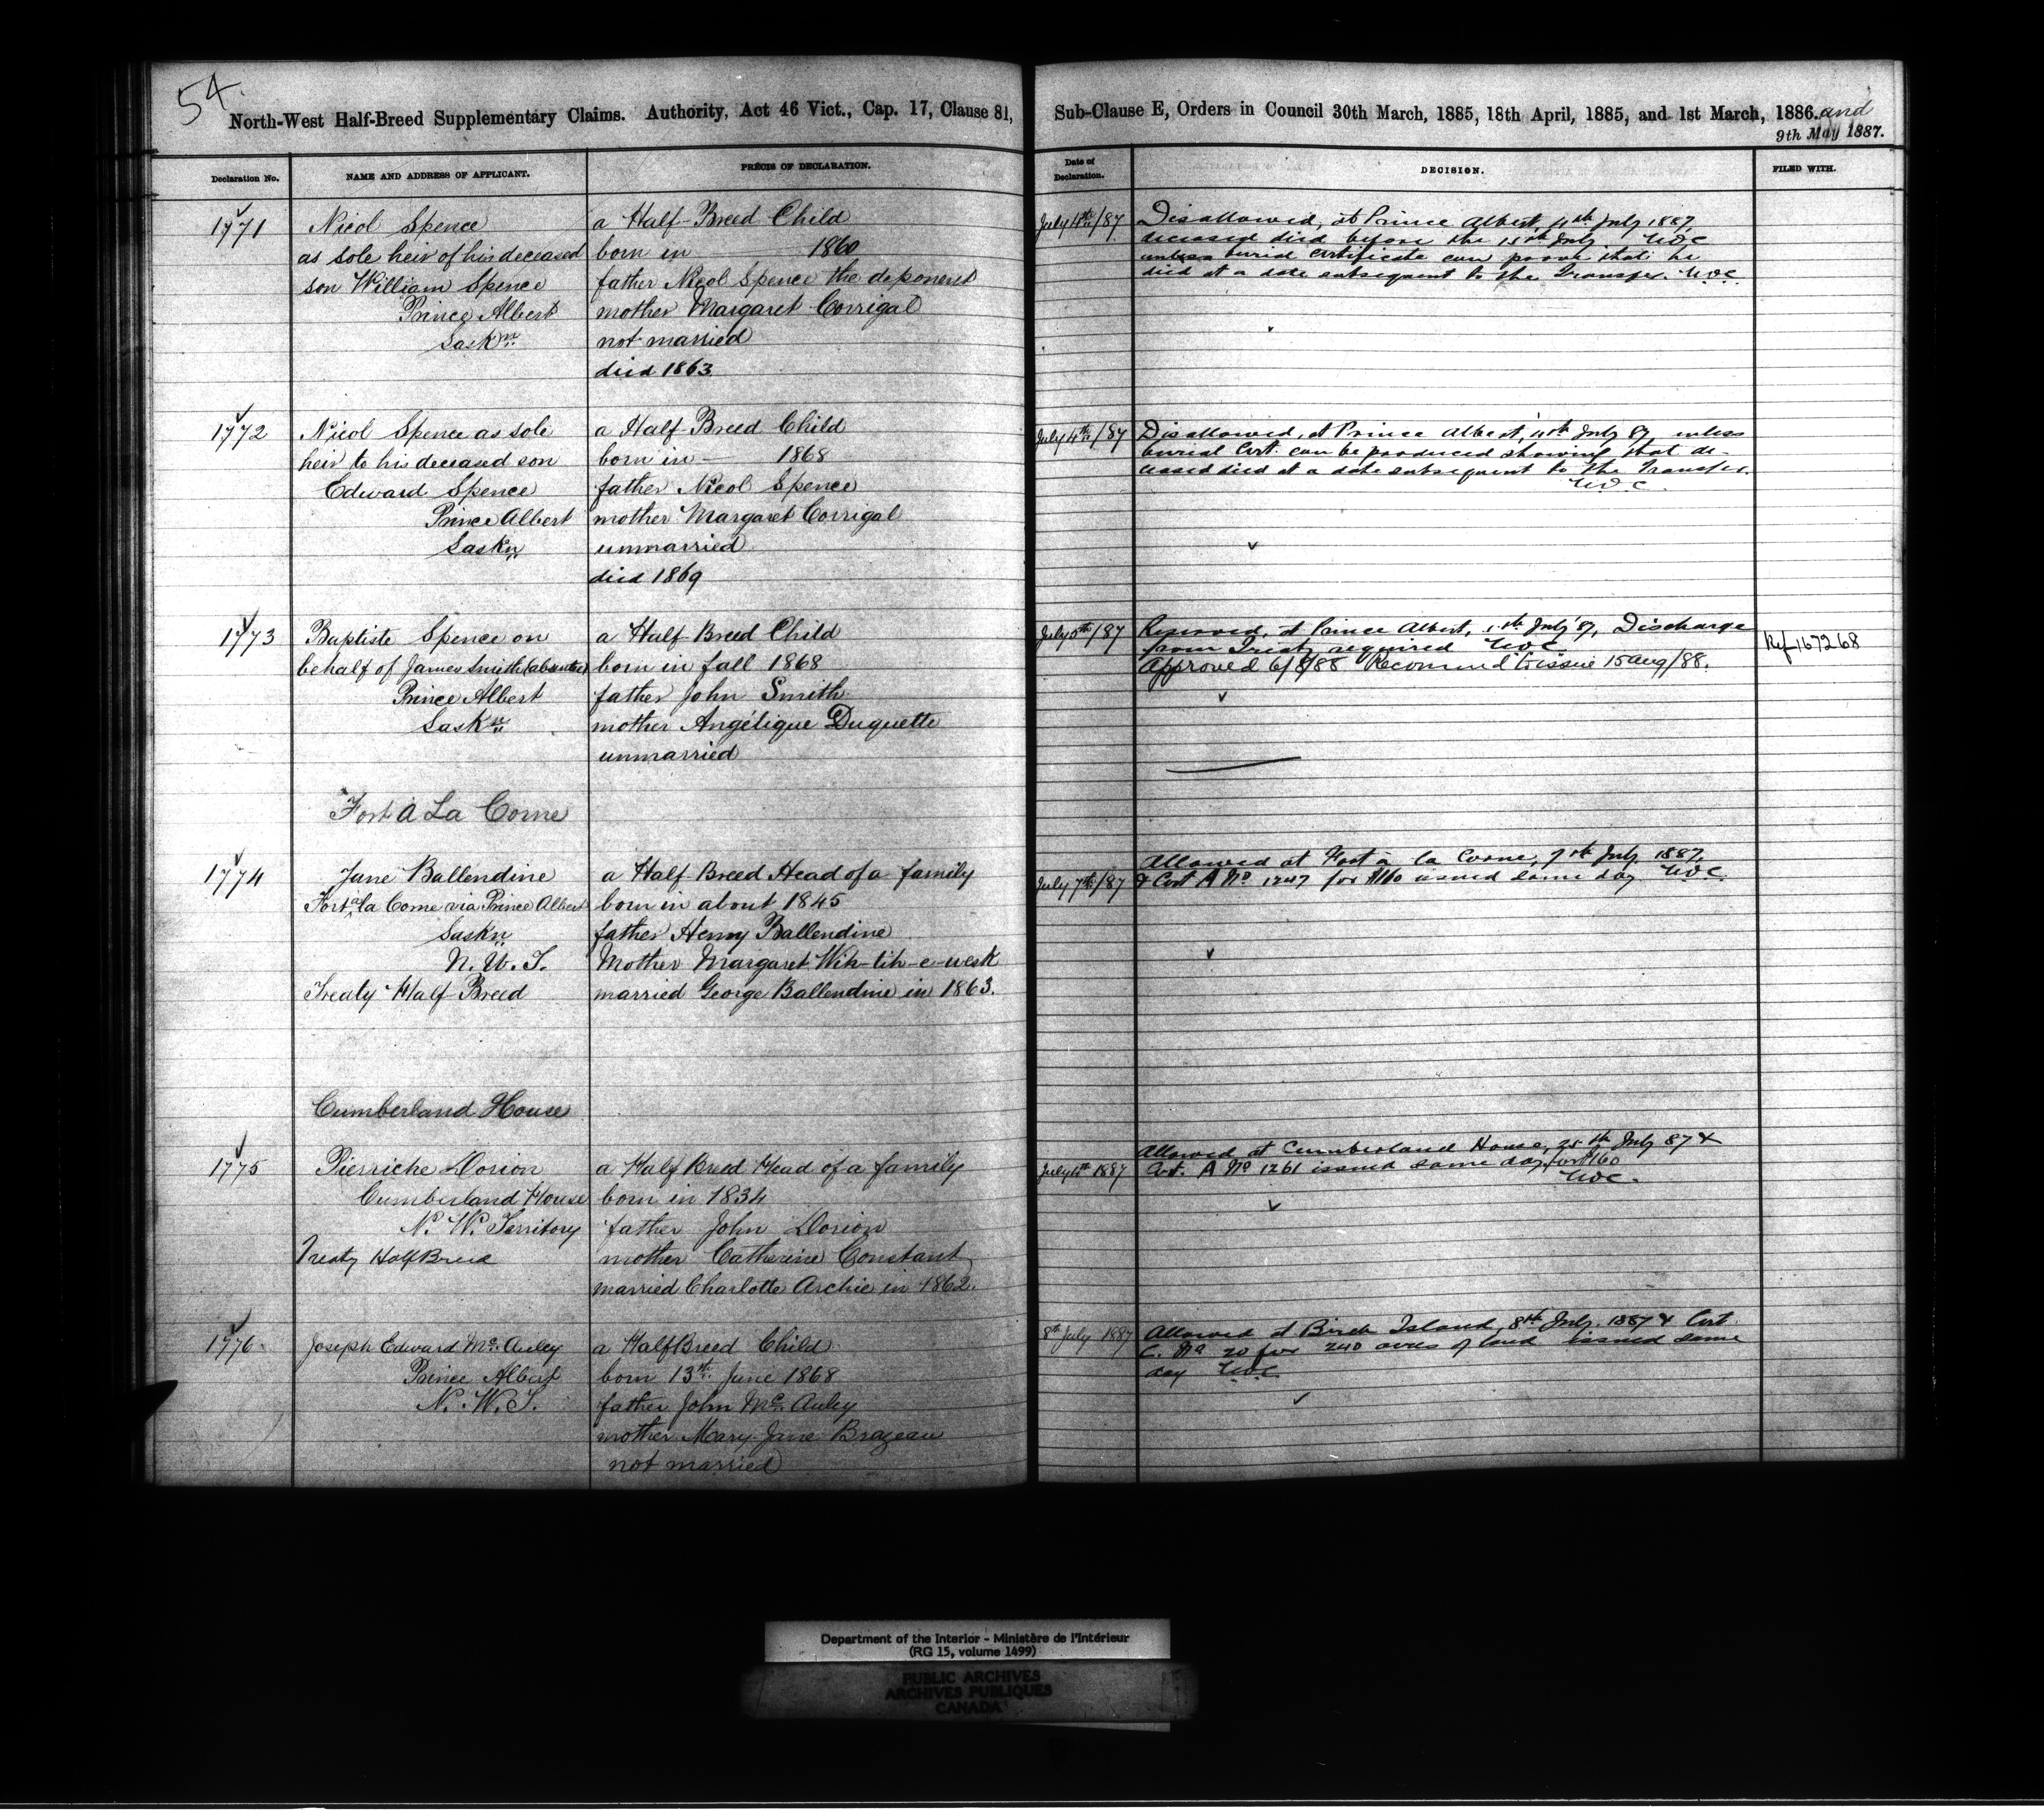 54.
North-West Half-Breed Supplementary Claims. Authority, Act 46 Vict., Cap. 17, Clause 81,
Sub-Clause E, Orders in Council 30th March, 1885, 18th April, 1885, and 1st March, 1886. and
9th May 1887.
Declaration No.
NAME AND ADDRESS OF APPLICANT.
PRÉCIS OF DECLARATION.
Date of
Declaration.
DECISION.
FILED WITH.
1771
Nicol Spence
as sole heir of his deceased
son William Spence
Prince Albert
Saskn
a Half-Breed Child
born in 1860
father Nicol Spence the deponent
mother Margaret Corrigal
not married
died 1863
July 4th/87
Disallowed, at Prince Albert, 4th July 1887,
deceased died before the 15th July. W.D.C
unless burial certificate can prove that he
died at a date subsequent to the Transfer. W.D.C.
1772
Nicol Spence as sole
heir to his deceased son
Edward Spence
Prince Albert
Saskn
a Half Breed Child
born in — 1868
father Nicol Spence
mother Margaret Corrigal
unmarried
died 1869
July 4th/87
Disallowed, at Prince Albert, 4th July 87, unless
burial Cert. can be produced showing that de-
ceased died at a date subsequent to the Transfer.
W.D.C.
1773
Baptiste Spence on
behalf of James Smith (absentee)
Prince Albert
Saskn
a Half Breed Child
born in fall 1868
father John Smith
mother Angélique Duquette
unmarried
July 5th/87
Reserved, at Prince Albert, July 87, Discharge
from Treaty required W.D.C.
Approved 6/8/88 Recommd to issue 15 Aug/88.
Ref 167268
Fort à La Corne
1774
Jane Ballendine
Fort à la Corne via Prince Albert
Saskn
N. W. T.
Treaty Half Breed
a Half Breed Head of a family
born in about 1845
father Henry Ballendine
Mother Margaret Wih-tih-e-wesk
married George Ballendine in 1863.
July 7th/87
Allowed at Fort à la Corne, 7th July 1887,
& Cert A No 1247 for $160 issued same day W.D.C.
Cumberland House
1775
Pierriche Dorion
Cumberland House
N. W. Territory
Treaty Half Breed
a Half Breed Head of a family
born in 1834
father John Dorion
mother Catherine Constant
married Charlotte Archie in 1862.
July 1887
Allowed at Cumberland House, 25th July 87 &
Cert. A No 1261 issued same day for $160
W.D.C.
1776
Joseph Edward Mc. Auley
Prince Albert
N. W. T.
a Half Breed Child
born 13th June 1868
father John Mc. Auley
mother Mary Jane Brazeau
not married
8th July 1887
Allowed at Birch Island 8th July. 1887 & Cert.
C. No 20 for 240 acres of land issued same
day W.D.C.
Department of the Interior - Ministère de l'Intérieur
(RG 15, volume 1499)
PUBLIC ARCHIVES
ARCHIVES PUBLIQUES
CANADA